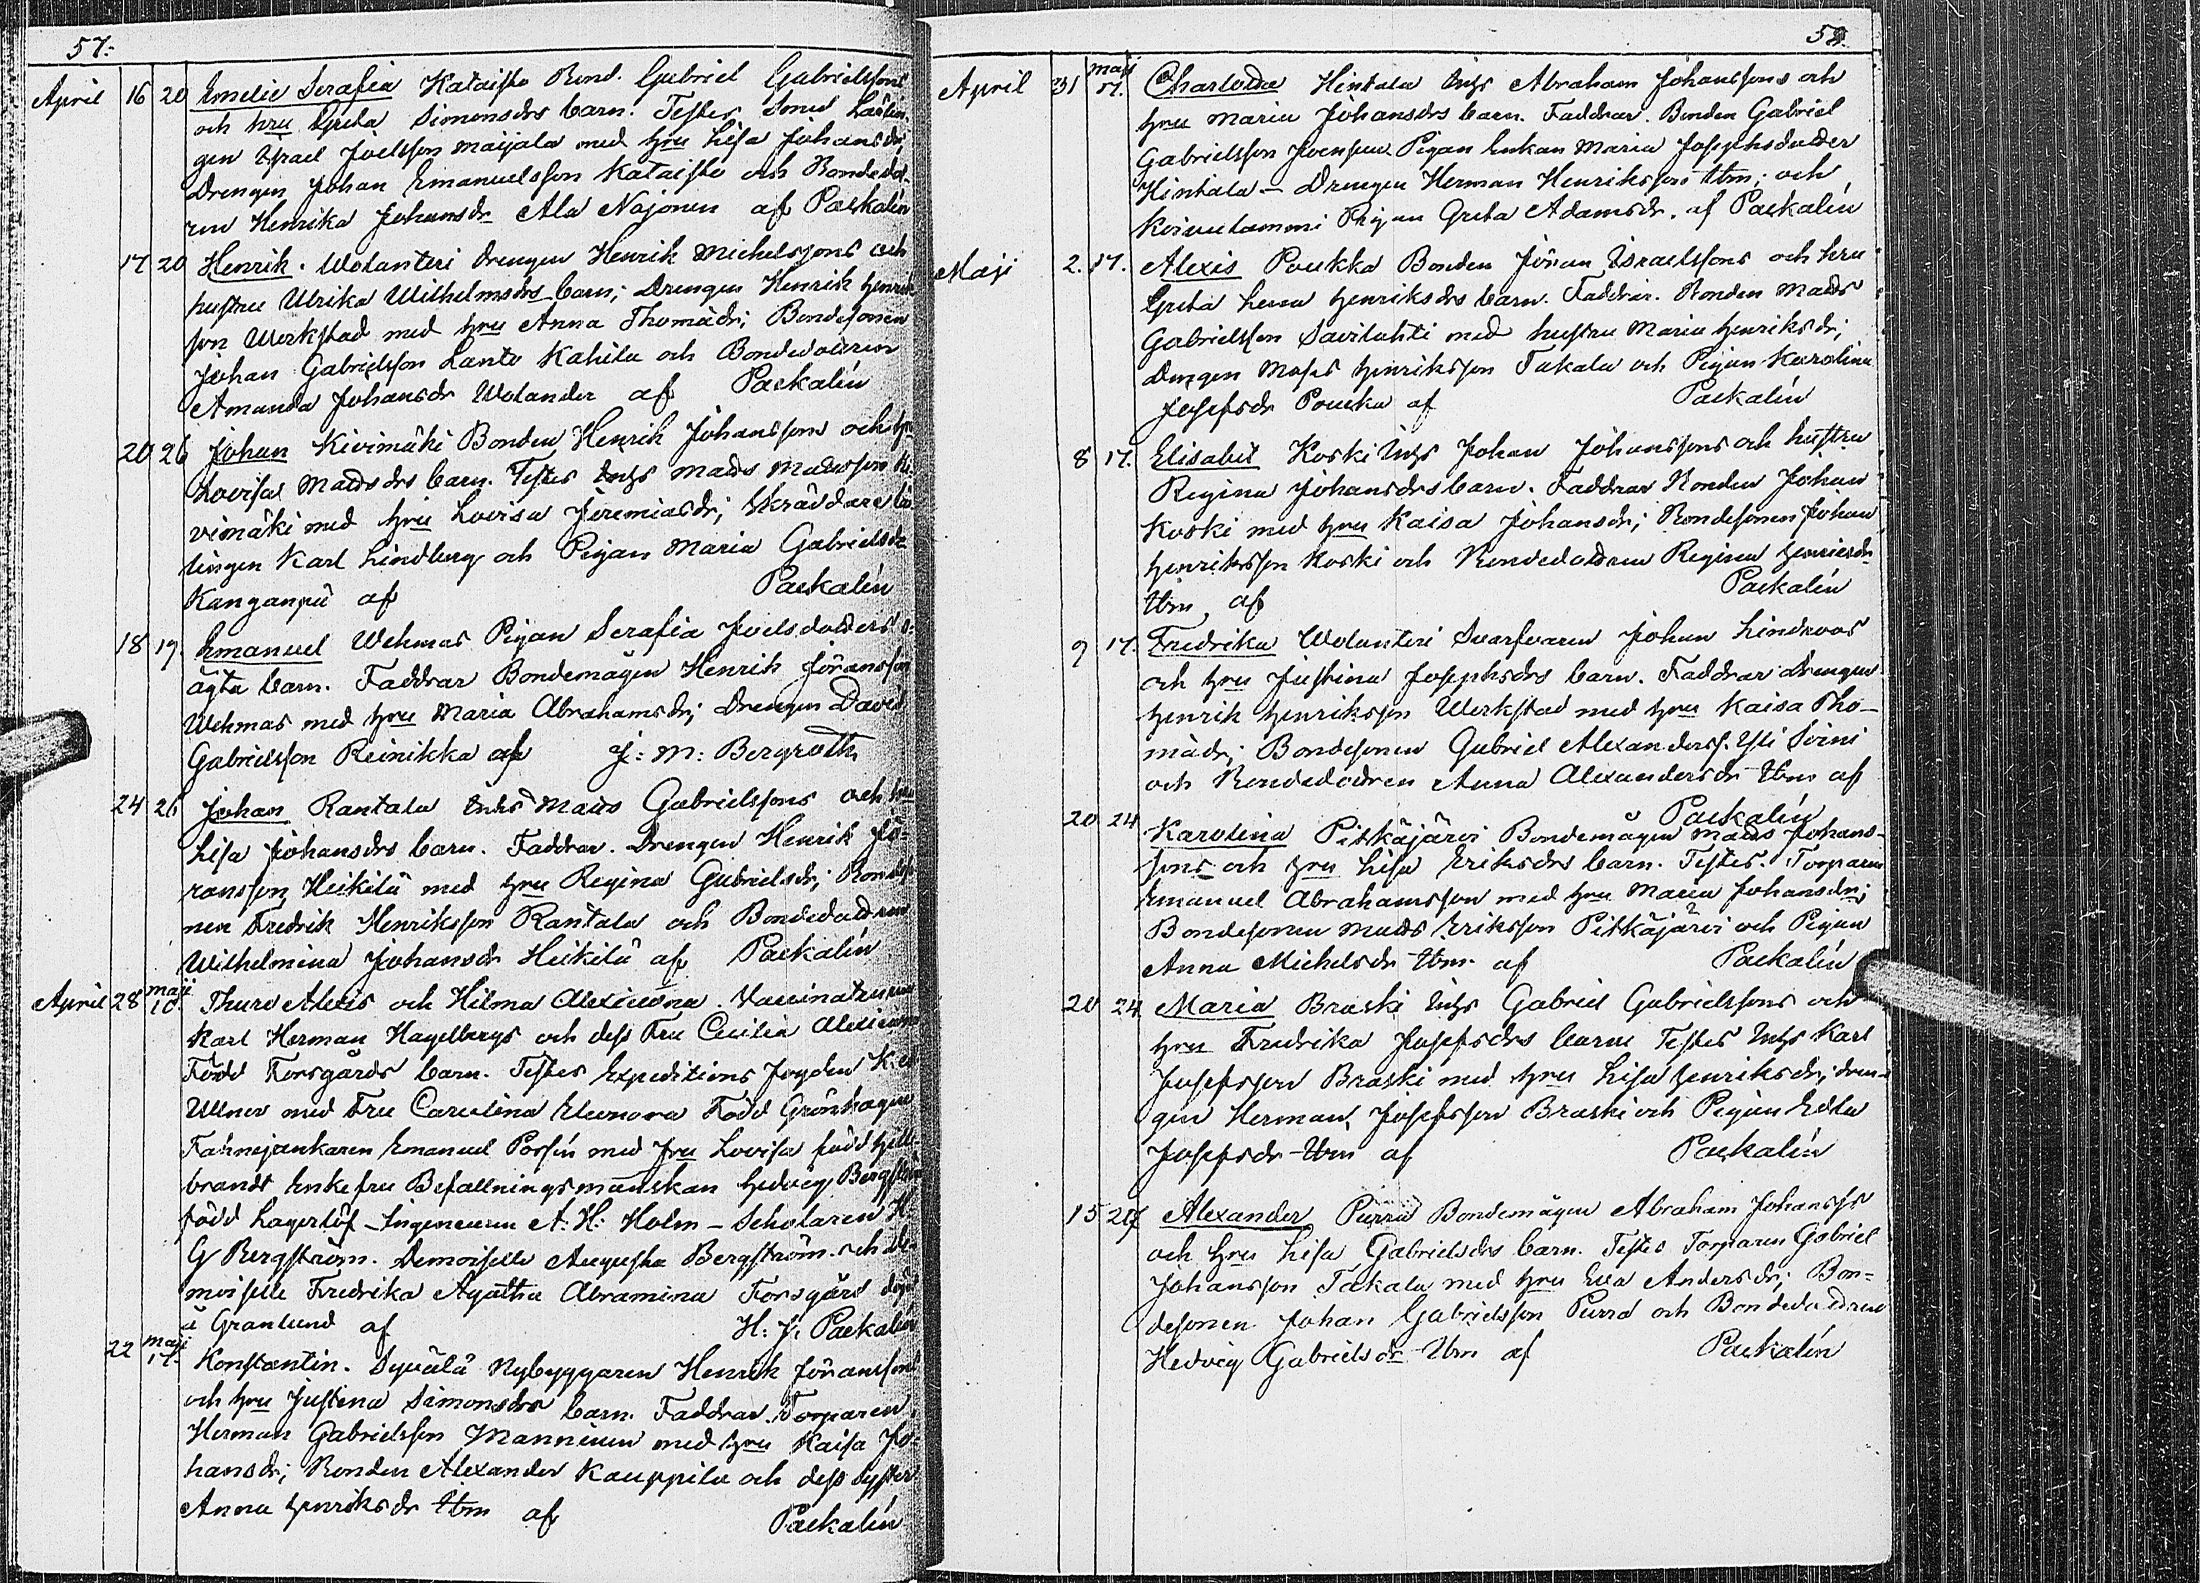 57.
April 16 20 Emelie Serafia Kataisto Bond. Gabriel Gabrielssons
och hru Greta Simonsdrs barn. Testes
gen Israel Joelsson Maijala med hru Lisa Johansdr;
Drengen Johan Emanuelsson Kataisto och Bondedot
ren Henrika Johansdr Ala Nojonen af Paekalén
17 20 Henrik. Wolanteri Drengen Henrik Michelssons och
hustru Ulrika Wilhelmsdrs barn; Drengen Henrik Henrik
son Werkstad med hru Anna Thomädr; Bondesonen
Johan Gabrielsson Lanto Kahila och Bondedottren
Amanda Johansdr Wolander af Paekalén
20 26 Johan Kivimäki Bonden Henrik Johanssons och hru
Lovisa Matsdrs barn. Testes Inhs Mats Matsson Ki
vimäki med hru Lovisa Jeremiasdr; Skräddare lär
lingen Karl Lindberg och Pigan Maria Gabrielsdr
Kanganpä af Paekalén
18 19. Emanuel Wehmas Pigan Serafia Joelsdotters o:
ägta barn. Faddrar Bondemågen Henrik Göransson
Wehmas med hru Maria Abrahamsdr; Drengen David
Gabrielsson Reinikka af J: M: Bergroth
24 26 Johan Rantala Inhs Mats Gabrielssons och hru
Lisa Johansdrs barn. Faddrar. Drengen Henrik Jö-
ransson Heikilä med hru Regina Gabrielsdr; Bondeso
nen Fredrik Henriksson Rantala och Bondedottren
Wilhelmina Johansdr Heikilä af Paekalén
April 28 Maji 10. Thure Alexis och Hilma Alexiewna. Vaccinateuren
Karl Herman Hagelbergs och dess Fru Cecilia
Född Forsgårds barn. Testes Expeditions Fogden
Ullner med Fru Carolina Eleonora Född Grönhagen
Fahnejunkaren Emanuel Porsén med Fru Lovisa född Hille
brandt Enkefru Befallningsmanskan Hedvig Bergström
född Lagerlöf – Ingenieuren A: H: Holm – Scholaren H:
G Bergström. Demoiselle Augusta Bergström. och de-
moiselle Fredrika Agatha Abramina Forsgård
å Granlund af H: J: Paekalén
22 Maji 17. Konstantin. Syvälä Nybyggaren Henrik Göranssons
och hru Justina Simonsdrs barn. Faddrar. Torparen
Herman Gabrielsson Manninen med hru Kaisa Jo-
hansdr; Bonden Alexander Kauppila och dess syster
Anna Henriksdr Ibm af Paekalén
58.
April 31 Maji 17. Charlotta Hintala Inhs Abraham Johanssons och
hru Maria Johansdrs barn. Faddrar. Bonden Gabriel
Gabrielsson Pigan Enkan Maria Josephsdotter
Hintala – Drengen Herman Henriksson Ibm; och
Koivulammi Pigan Greta Adamsdr. af Paekalén
Maji 2. 17. Alexis Poukka Bonden Jöran Israelssons och hru
Greta Lena Henriksdrs barn. Faddrar. Bonden Mats
Gabrielsson Savilahti med hustru Maria Henriksdr;
Drengen Moses Henriksson Takala och Pigan Karolina
Josefsdr Poukka af Paekalén
8 17. Elisabet Koski Inhs Johan Johanssons och hustru
Regina Johansdrs barn. Faddrar Bonden Johan
Koski med hru Kaisa Johansdr; Bondesonen Johan
Henriksson Koski och Bondedottren Regina Henriksdr
Ibm af Paekalén
9 17. Fredrika Wolanteri Svarfvaren Johan Lindroos
och hru Justina Josephsdrs barn. Faddrar Drengen
Henrik Henriksson Werkstad med hru Kaisa Tho-
mädr; Bondesonen Gabriel Alexanderss. Yli Soini
och Bondedottren Anna Alexandersdr Ibm af
Paekalén
20 24 Karolina Pitkäjärvi Bondemågen Mats Johans-
sons och hru Lisa Eriksdrs barn. Testes. Torparen
Emanuel Abrahamsson med hru Maria Johansdr;
Bondesonen Mats Eriksson Pitkäjärvi och Pigan
Anna Michelsdr Ibm af Paekalén
20 24 Maria Braski Inhs Gabriel Gabrielssons och
hru Fredrika Josefsdrs barn Testes Inhs Karl
Josefsson Braski med hru Lisa Henriksdr; dren-
gen Herman Josefsson Braski och Pigan Edla
Josefsdr Ibm af Paekalén
15 27 Alexander Purra Bondemågen Abraham Johanss
och hru Lisa Gabrielsdrs barn. Testes Torparen Gabriel
Johansson Takala med hru Eva Andersdr; Bon-
desonen Johan Gabrielsson Purra och Bondedottren
Hedvig Gabrielsdr Ibm af Paekalén